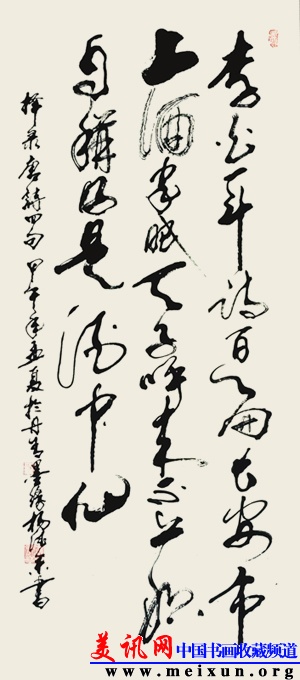 李白一斗詩百篇長安市
上酒家眠天子呼來不上船
自稱臣是酒中仙
擇录唐詩四句 甲午年孟夏於丹青墨緣楊書
美讯网 中国书画收藏频道
www.meixun.org